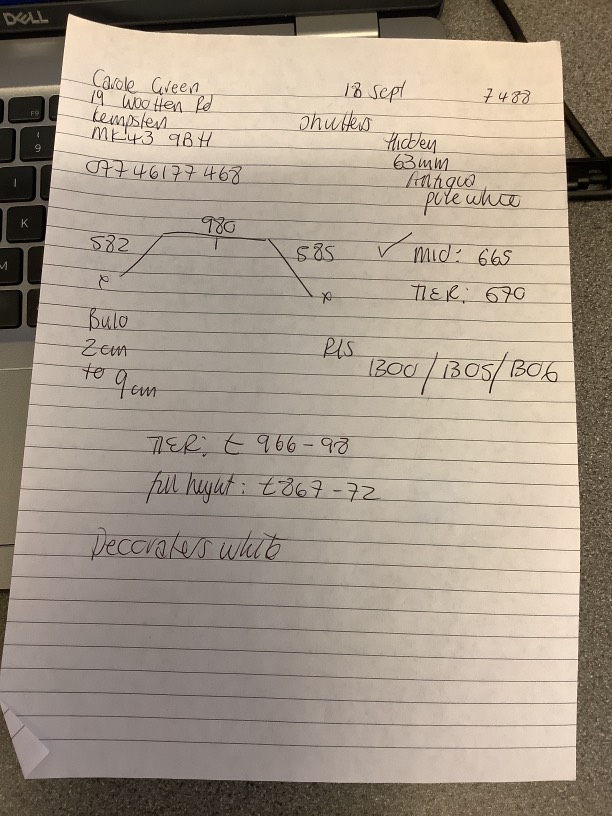 DELL
Carole Green
19 Wootten Rd
Kempston
MK43 9BH
07746177468
18 Sept
7488
Shutters
Hidden
63mm
Antigua
pure white
582
980
585
✓ Mid: 665
TIER: 670
x
x
2cm
to 9cm
R/S
1300/1305/1306
TIER: £ 966-98
full height: £867-72
Decorators white
F9
9
I
K
M